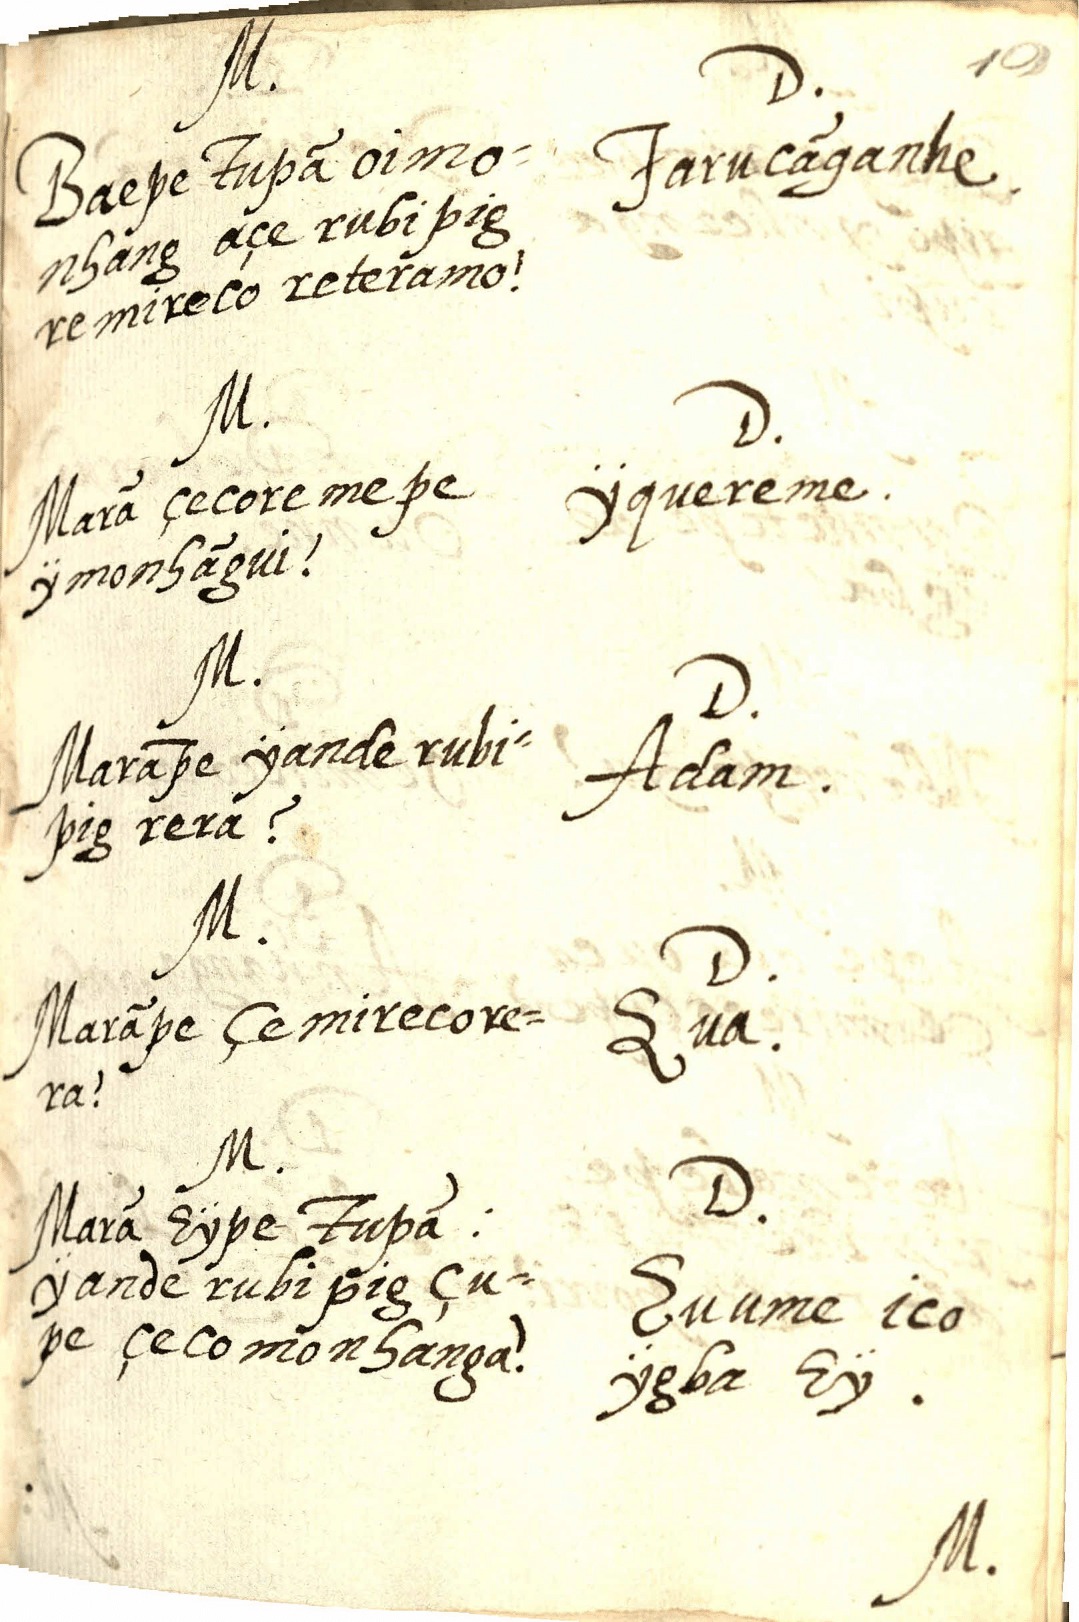 10
M.
Baepe Tupã oimo=
nhang açe rubi pig
remireco reteramo?
D.
Jarucãganhe.
M.
Marã çecoreme pe
ÿmonhãgui?
D.
ÿquereme.
M.
Marãpe ÿande rubi=
pig rera?
D.
Adam.
M.
Marãpe Çemirecore=
ra?
D.
Eua.
M.
Marã Eÿpe Tupã:
ÿande rubi pig Çu=
pe çecomonhanga?
D.
Euume ico
ÿgba Eÿ.
M.